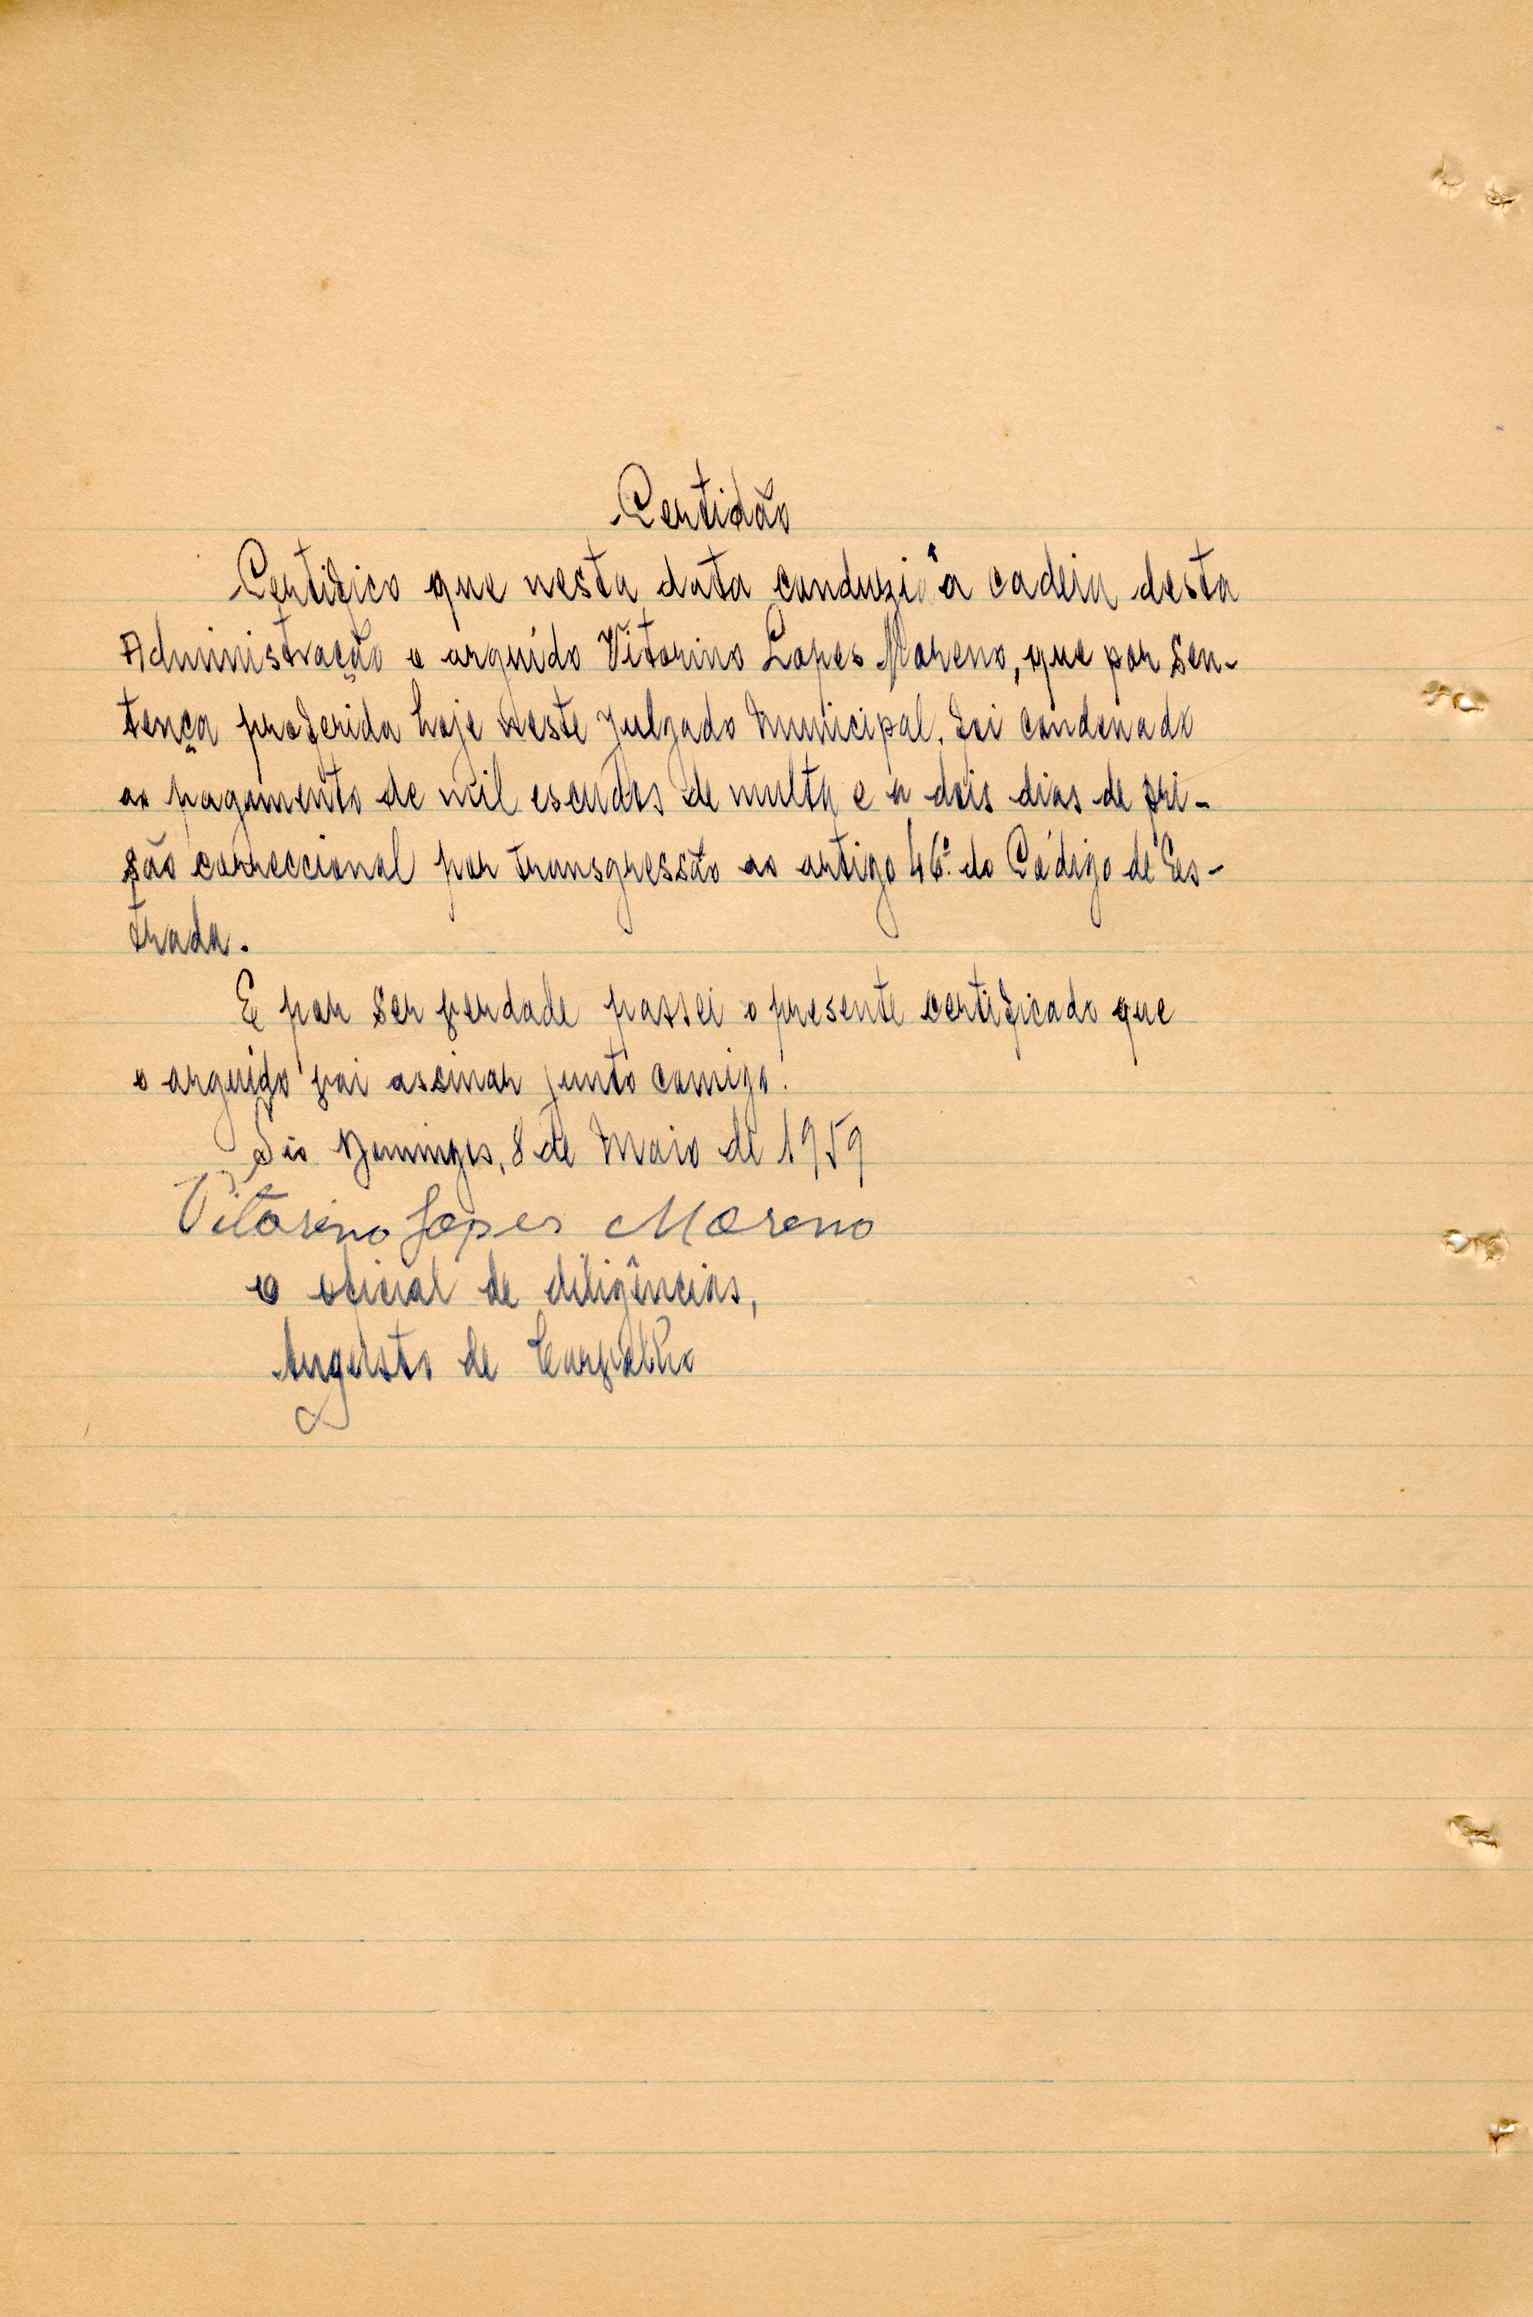 Certidão
Certifico que nesta data conduzi á cadeia desta
Administração o arguido Vitorino Lopes Moreno, que por sen-
tença proferida hoje neste Julgado Municipal, foi condenado
ao pagamento de mil escudos de multa e a dois dias de pri-
são correccional por transgressão ao artigo 46º do Código de Es-
trada.
E por ser verdade passei o presente certificado que
o arguido vai assinar junto comigo.
São Domingos, 8 de Maio de 1959
Vitorino Lopes Moreno
O oficial de diligências,
Augusto de Carvalho